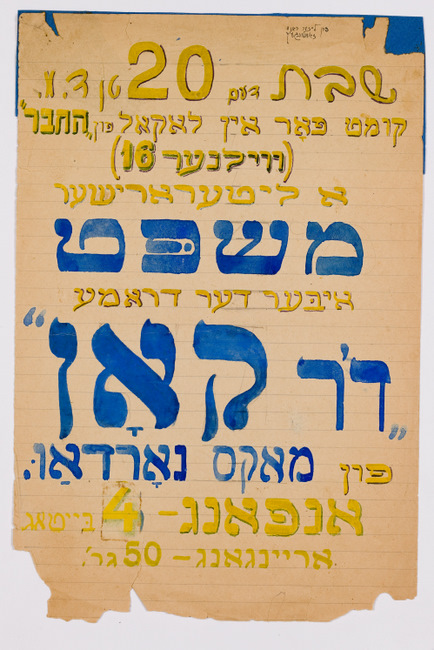 שבת דעם 20טן ד.י.
קומט פאָר אין לאקאל פון „התבר"
(ווילנער 16)
א ליטערארישער
משפּט
איבּער דער דראמע
„ד'ר קאָן"
פון מאקס נאָרדאַו.
אנפאנג – 4 בייטאג
אריינגאנג – 50 גר.